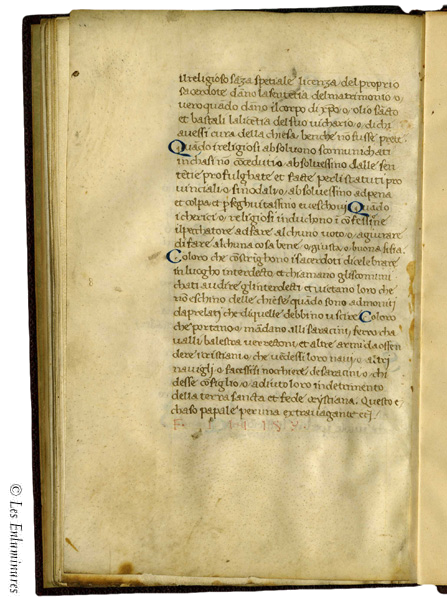 il religioso saza spetiale licenza del proprio
sacerdote dano la sententia del matrimonio o
vero quado dano il corpo di xpo o olio sacto
et bastali la licetia del suo vichario o di chi
avessi cura della chiesa benche no fusse prete
Quado i religiosi absoluono scomunichati
in chasi no cocedutio absoluessino dalle sen
tetie promulghate et facte per li statuti pro
uinciali o sinodali o absoluessino a pena
et colpa et i vescoui Quado
i cherici o religiosi induchono i
il pechatore ad fare alchuno voto o a giurare
di fare alchuna cosa bene o giusta o buona
Coloro che costrighono i sacerdoti di celebrare
in luogho interdecto et chiamano gli scomuni
chati a udire gli interdecti et vietano loro che
no eschino delle chiese quado sono admoniti
da prelati che di quelle debbino uscire Coloro
che portano o madano alli saracini ferro cha
valli balestra et altre armi da offen
dere i cristiani o che vedessi loro navi o altri
navigli o facessesi nochiere de saracini o chi
desse cosiglio o adiuto loro in detrimento
della terra sancta et fede crystiana. Questo e
chaso papale per una extravagante